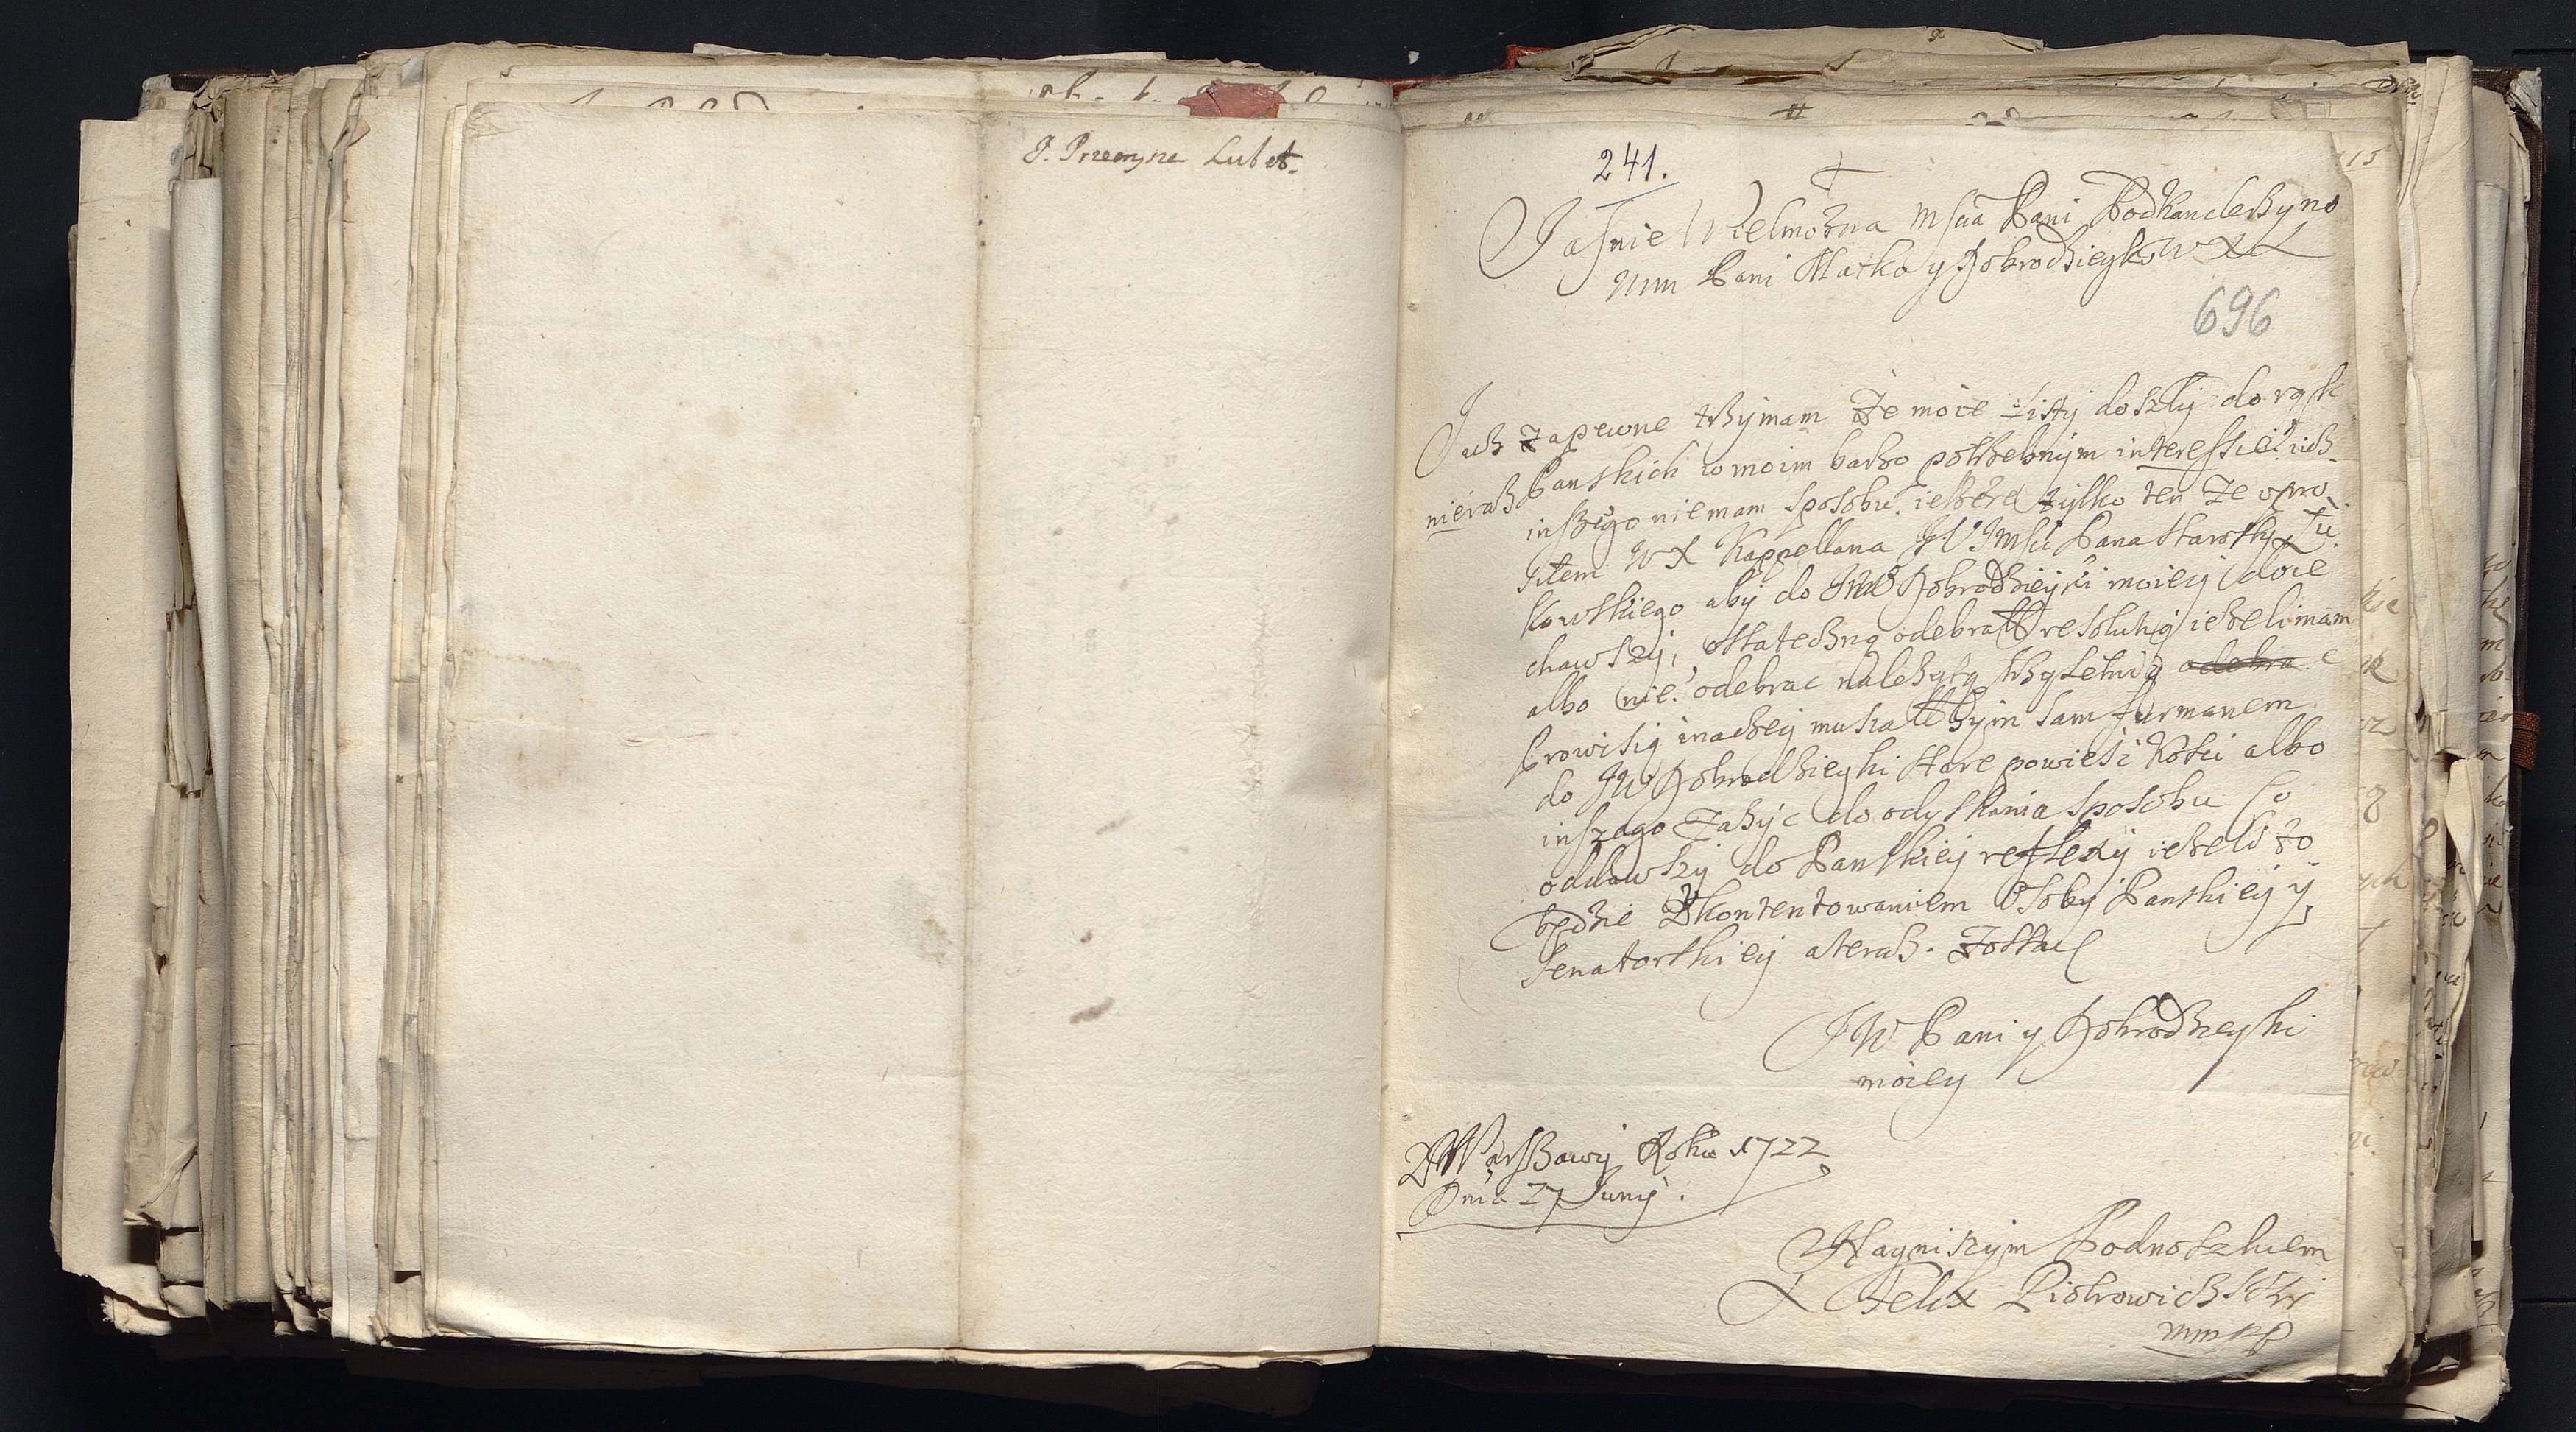 P. Przemysze Lubet.
241.
Jasnie Wielmożna Msćia Pani Podkanclerzyno
Mm Pani Matko y Dobrodzieyko WXL
696
Jusz zapewne trzymam że moie listy doszły do rąk
nieraz Panskich w moim barzo potrzebnym interessie! iusz
inszego niemam sposobu. ieszcze tylko ten że upro
siłem WX Kappellana JW Jmsci Pana Starosty Łu
kowskiego aby do JW Dobrodzieyki moiey doie
chawszy, Stateczną odebrał resolutią ieżeli mam
albo nie! odebrac należytą trzyletnią
prowisią inaczey musiałbym sam furmanem
do JW Dobrodzieyki stare powieść kości albo
inszego zażyc do odyskania sposobu Co
oddawszy do Panskiey reflexy ieżeli to
będzie Zkontentowaniem Osoby Panskiey y
Senatorskiey ateraz. Zostaię
JW Pani y Dobrodzieyki
moiey
ZWarszawy Roku 1722
Dnia 27 Juny.
Nayniszym Podnoszkiem
X Felix Piotrowicz
mmpp